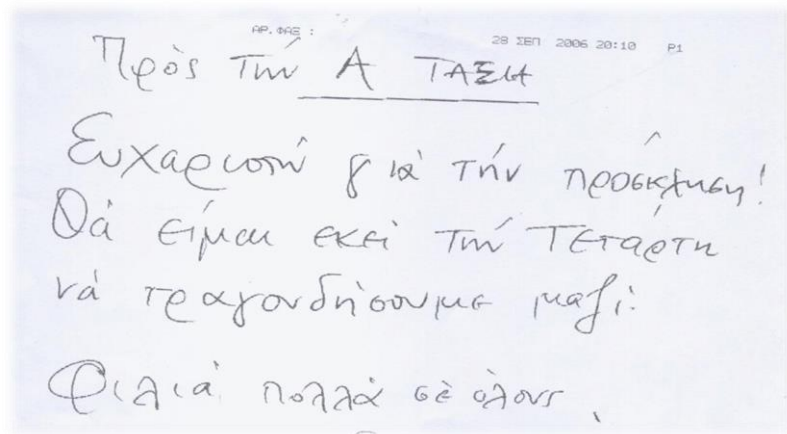 ΑΡ.ΦΑΞ :
28 ΣΕΠ 2006 20:10 Ρ1
Πρὸς τήν Α ΤΑΞΗ
Ευχαριστώ γιὰ τήν πρόσκληση!
Θὰ είμαι εκεί τήν Τετάρτη
νά τραγουδήσουμε μαζί.
Φιλιὰ πολλὰ σὲ όλους,